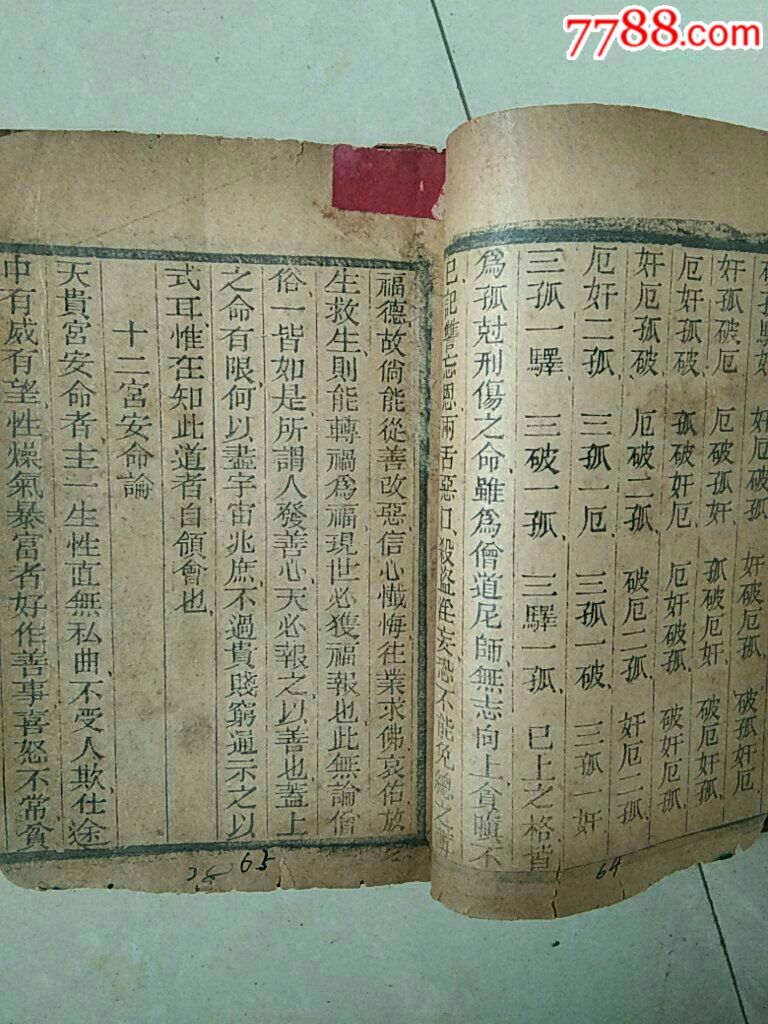 7788.com
破孤奸厄
奸孤破厄 厄破孤奸 孤破厄奸 破厄奸孤
厄奸孤破 孤破奸厄 厄奸破孤 破奸厄孤
奸厄孤破 厄破二孤 破厄二孤 奸厄二孤
厄奸二孤 三孤一厄 三孤一破 三孤一奸
三孤一驛 三破一孤 三驛一孤 已上之格皆
爲孤尅刑傷之命雖爲僧道尼師無志向上貪瞋不
已記讐忘恩兩舌惡口殺盜淫妄恐不能免總之
64
福德故倘能從善改惡信心懺悔往業求佛哀佑放
生救生則能轉禍爲福現世必獲福報也此無論僧
俗一皆如是所謂人發善心天必報之以善也蓋上
之命有限何以盡宇宙兆庶不過貴賤窮通示之以
式耳惟在知此道者自領會也
十二宮安命論
天貴宮安命者主一生性直無私曲不受人欺仕途
中有威有望性燥氣暴富者好作善事喜怒不常貧
65